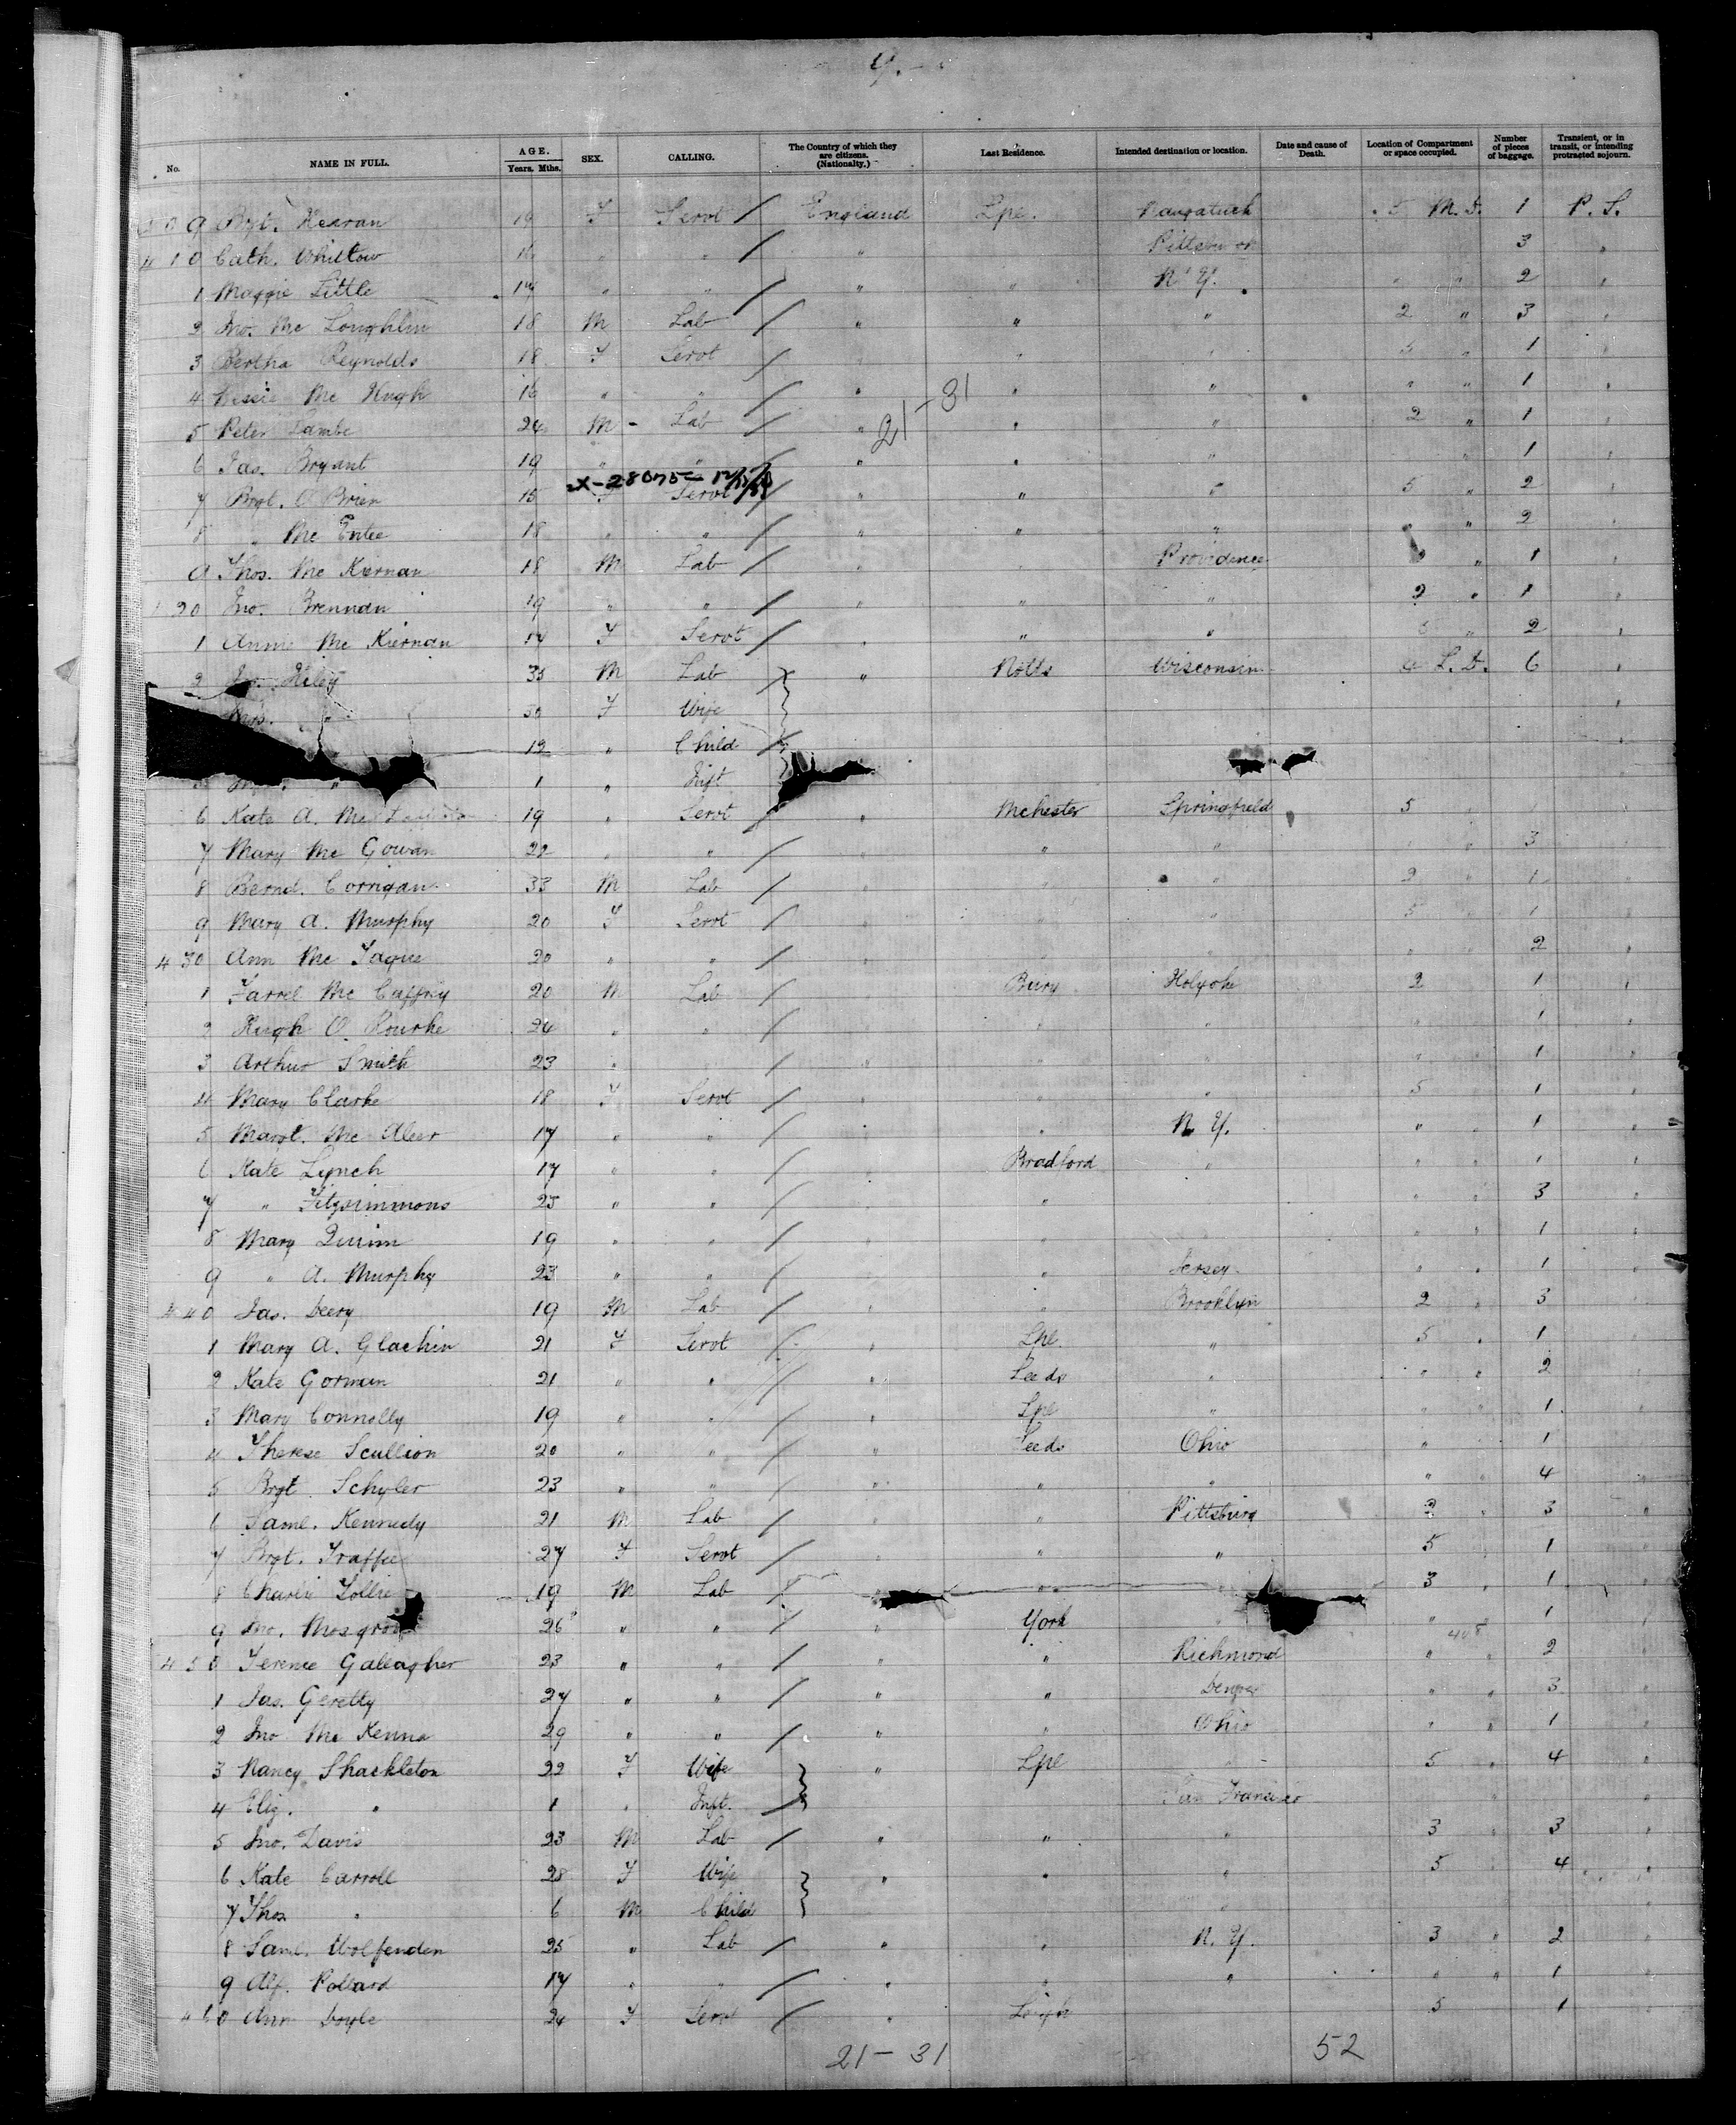 9.
No. NAME IN FULL. AGE. Years. Mths. SEX. CALLING. The Country of which they are citizens. (Nationalty.) Last Residence. Intended destination or location. Date and cause of Death. Location of Compartment or space occupied. Number of pieces of baggage. Transient, or in transit, or intending protracted sojourn.
9 Bgt. Kearan 19 F Servt / England Lpl. Naugatuck 5 M.D. 1 P.S.
410 Cath. 16 " " / " 3 "
1 Maggie Little 17 " " / " " N.Y. " " 2 "
2 Jno. Mc Loughlin 18 M Lab / " " " 2 " 3 "
3 Bertha Reynolds 18 F Servt / " " 5 " 1 "
4 Mc Hugh 16 " " / " " " " " 1 "
5 Peter Lambe 24 M - Lab / " " " 2 " 1 "
21-31
6 Jas. Bryant 19 " " / " " " " 1 "
X-28075
7 Brgt. O Brien 15 F Servt / " " " 5 " 2 "
8 " Mc Entee 18 " " / " " " " 2 "
9 Thos. Mc Kiernan 18 M Lab / Providence " 1 "
20 Jno. Brennan 19 " " / " " " 2 " 1 "
1 Annie Mc Kiernan 17 F Servt / " " " 5 " 2 "
2 Jno. Kiley 35 M Lab " Notts Wisconsin 4 L.D. 6 "
Mrs. " 30 F Wife "
" 12 " Child /
1 " Inft
6 Kate A. 19 " Servt / " Mchester Springfield 5
7 Mary Mc Gowan 22 " " / " " " 3 "
8 Bernd. Corrigan 33 M Lab / " " 2 " 1 "
9 Mary A. Murphy 20 F Servt / " " 5 " 1 "
430 Ann Mc Tague 20 " " / " " " 2 "
1 Farrel Mc Caffrey 20 M Lab / Bury Holyoke 2 1 "
2 Hugh O. Rourke 24 " " / " " " 1 "
3 Arthur Smith 23 " / " " " " 1 "
4 Mary Clarke 18 F Servt / " " 5 " 1 "
5 Margt. Mc Aleer 17 " " / " N.Y. " " 1 "
6 Kate Lynch 17 " " / Bradford " " " 1 "
7 " Fitzsimmons 25 " " / " " " 3 "
8 Mary Quinn 19 " " / " " " 1 "
9 " A. Murphy 23 " " / " Jersey " " 1 "
440 Jas. Deery 19 M Lab / " " Brooklyn 2 " 3 "
1 Mary A. Glackin 21 F Servt / " Lpl. " 5 " 1 "
2 Kate Gorman 21 " " / " Leeds " " " 2
3 Mary Connolly 19 " " / " Lpl " " " 1
4 Therese Scullion 20 " " / " Leeds Ohio " 1
5 Brgt Schyler 23 " " / " " " " " 4 "
6 Saml. Kennedy 21 M Lab / " " Pittsburg 2 " 3 "
7 Brgt. Traffee 27 F Servt / " " " 5 " 1 "
8 Charlie 19 M Lab / " " " 3 " 1 "
9 Jno. 26 " " / " York " " 1 "
408
450 Terence Gallagher 23 " " / " " Richmond " " 2 "
1 Jas. Geretty 27 " " / " " Denver " " 3 "
2 Jno Mc Kenna 29 " " / " " Ohio " " 1 "
3 Nancy Shackleton 22 F Wife " Lpl " 5 " 4 "
4 Eliz. " 1 " Inft. / San Francisco " "
5 Jno. Davis 23 M Lab / " " " 3 " 3 "
6 Kate Carroll 28 F Wife " " " 5 " 4 "
7 Thos " 6 M Child "
8 Saml. Wolfenden 25 " Lab / " " N.Y. 3 " 2 "
9 Alf. Pollard 17 " " / " " " " " 1 "
460 Ann Doyle 24 F Servt / " Leigh 5 1 "
21-31 52